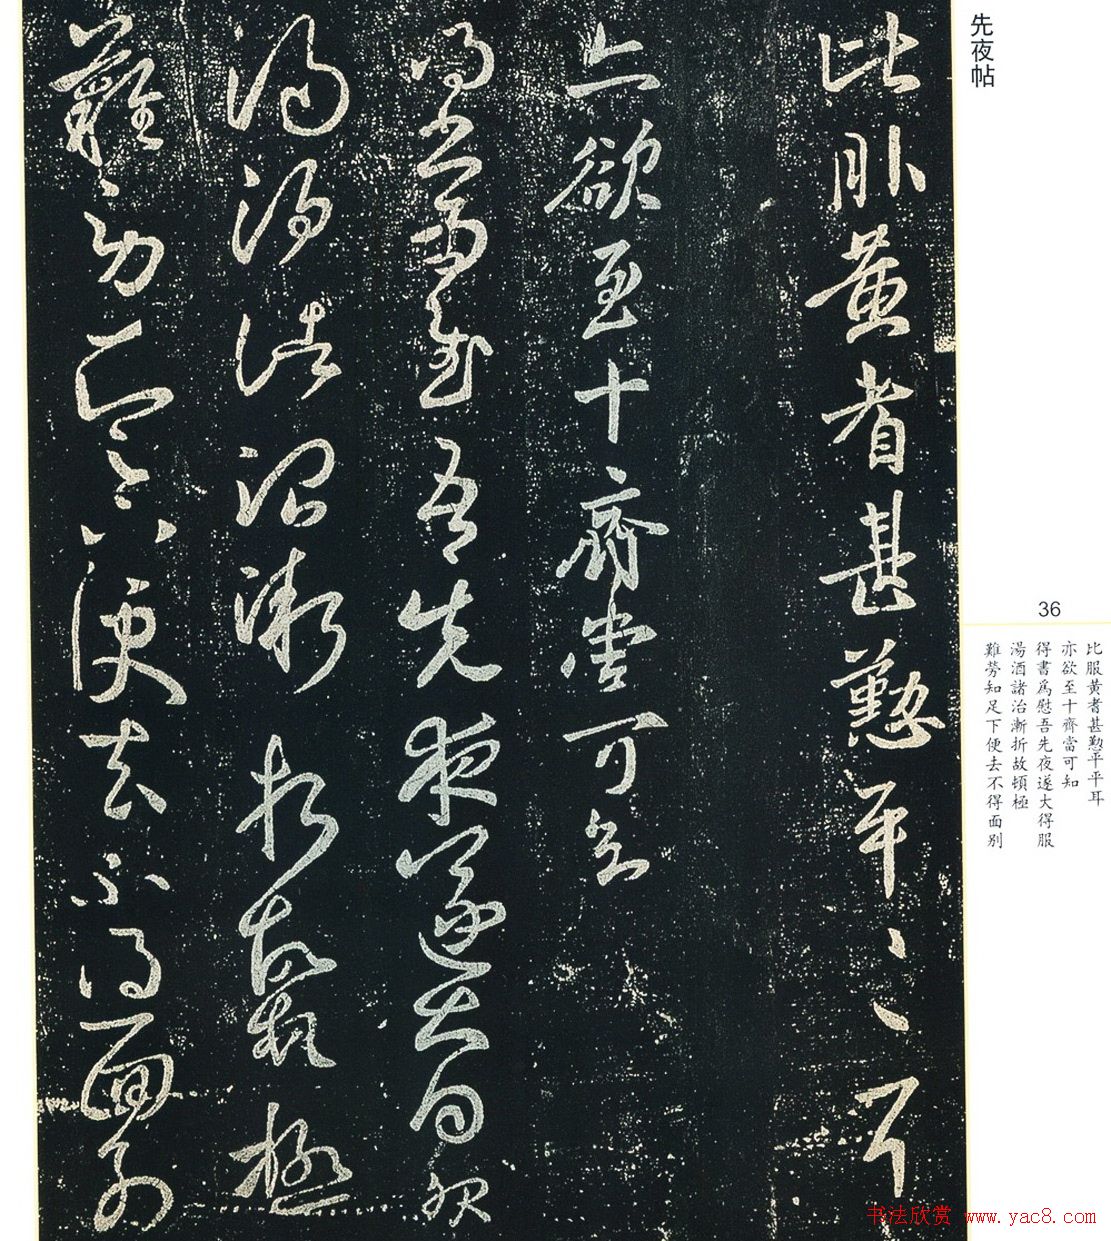 先夜帖
比服黃耆甚懃平〻耳
亦欲至十齊當可知
得書為慰吾先夜遂大得服
湯酒諸治漸折故頓極
難勞知足下便去不得面别
36
比服黃耆甚懃平平耳
亦欲至十齊當可知
得書爲慰吾先夜遂大得服
湯酒諸治漸折故頓極
難勞知足下便去不得面别
书法欣赏 www.yac8.com